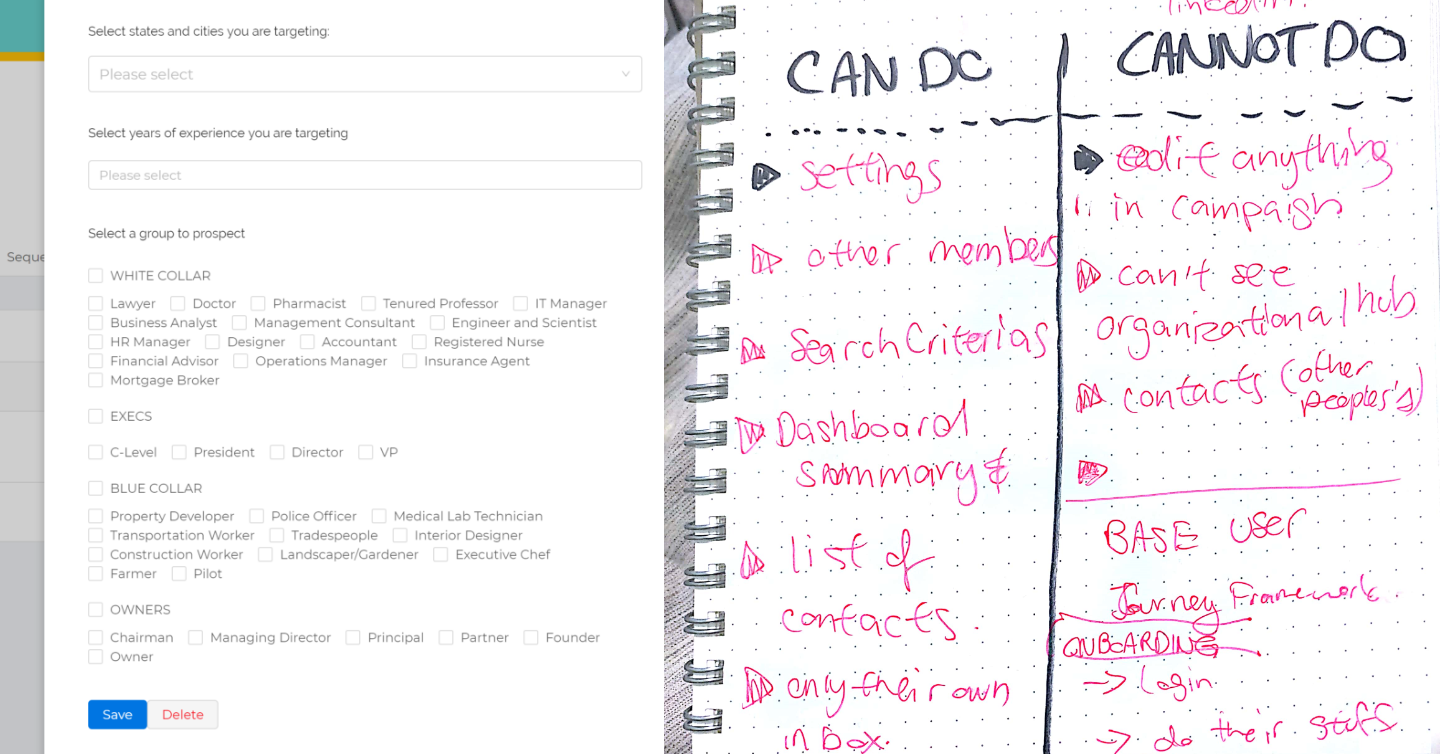 Select states and cities you are targeting:
Please select
Select years of experience you are targeting
Please select
Select a group to prospect
Seque
WHITE COLLAR
Lawyer Doctor Pharmacist Tenured Professor IT Manager
Business Analyst Management Consultant Engineer and Scientist
HR Manager Designer Accountant Registered Nurse
Financial Advisor Operations Manager Insurance Agent
Mortgage Broker
EXECS
C-Level President Director VP
BLUE COLLAR
Property Developer Police Officer Medical Lab Technician
Transportation Worker Tradespeople Interior Designer
Construction Worker Landscaper/Gardener Executive Chef
Farmer Pilot
OWNERS
Chairman Managing Director Principal Partner Founder
Owner
Save Delete
CAN DO
settings
other members
Search Criterias
Dashboard
summary &
list of
contacts.
only their own
inbox.
CANNOT DO
edit anything
in campaign
can't see
organizational hub
contacts (other
peoples's)
BASE USER
Journey Framework.
ONBOARDING
→ login
→ do their stuffs